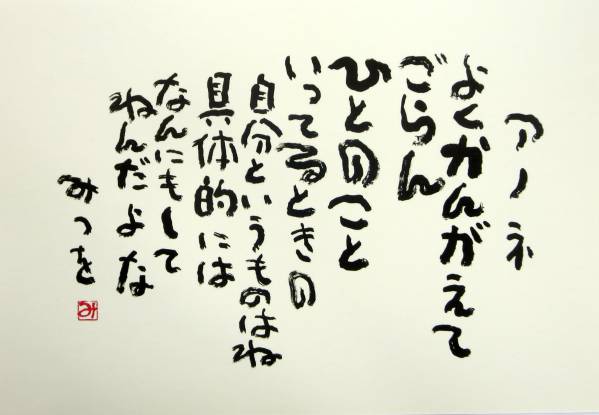 アノネ
よくかんがえて
ごらん
ひとのこと
いってるときの
自分というものはね
具体的には
なんにもして
ねんだよな
みつを
み